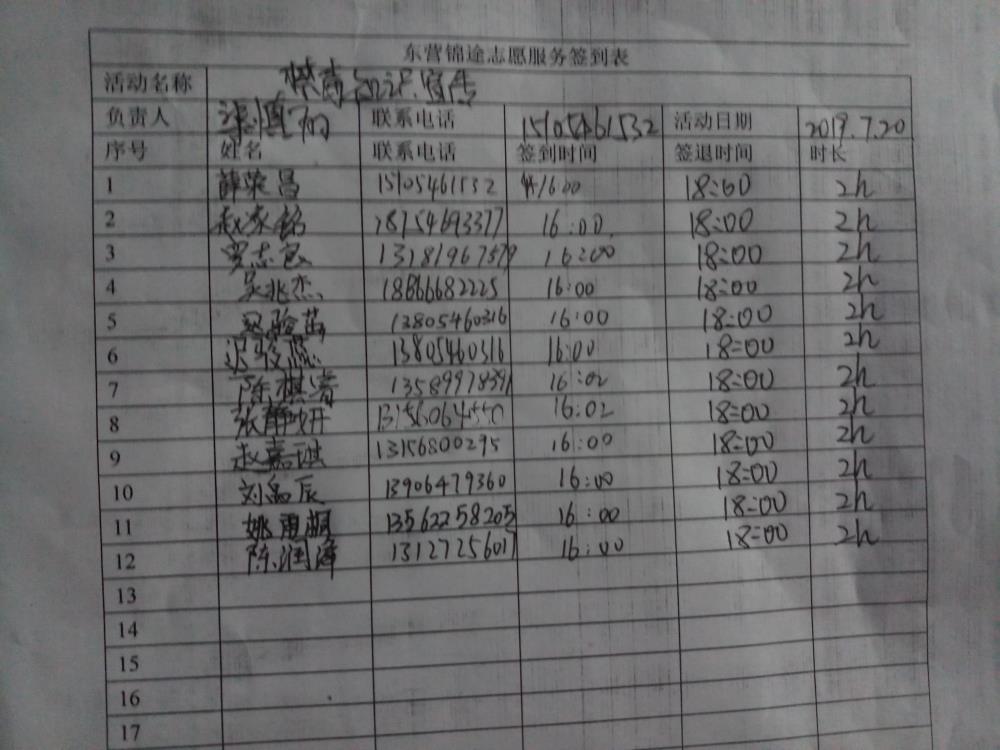 东营锦途志愿服务签到表
活动名称 禁毒知识宣传
负责人 联系电话 15105461532 活动日期 2019.7.20
序号 姓名 联系电话 签到时间 签退时间 时长
1 薛荣昌 15105461532 16:00 18:00 2h
2 赵家铭 18754693377 16:00 18:00 2h
3 贾志恩 16:00 18:00 2h
4 吴兆杰 18866682225 16:00 18:00 2h
5 13805460316 16:00 18:00 2h
6 13805460316 16:00 18:00 2h
7 陈祺睿 16:02 18:00 2h
8 张静妍 16:02 18:00 2h
9 赵嘉琪 13156800295 16:00 18:00 2h
10 刘禹辰 13906479360 16:00 18:00 2h
11 姚雨飒 13562258205 16:00 18:00 2h
12 陈润泽 1312725601 16:00 18:00 2h
13
14
15
16
17